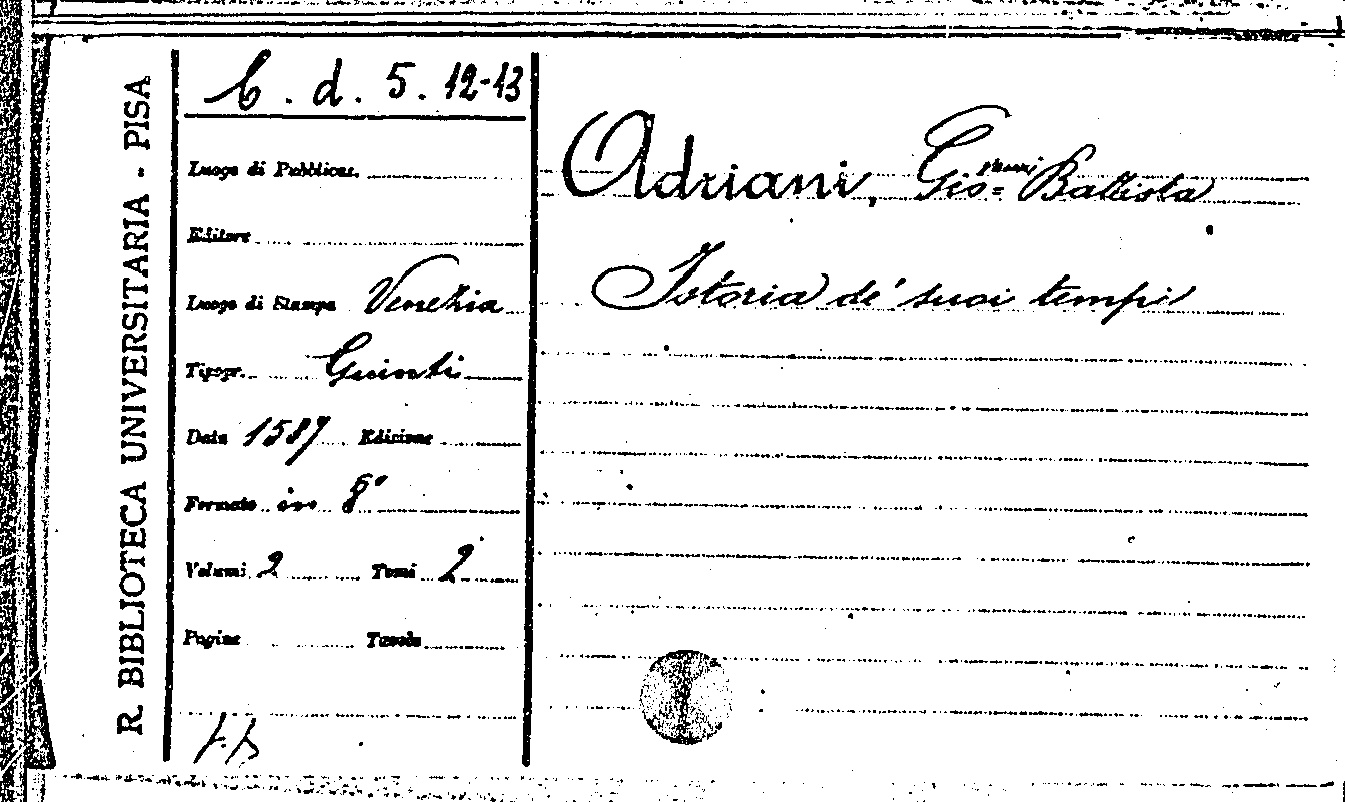 R. BIBLIOTECA UNIVERSITARIA - PISA
C. d. 5. 12-13
Luogo di Pubblicaz.
Editore
Luogo di Stampa Venezia
Tipogr. Giunti
Data 1587 Edizione
Formato in 8°
Volumi 2 Tomi 2
Pagine Tavole
Adriani, Gio= Battista
Istoria de' suoi tempi